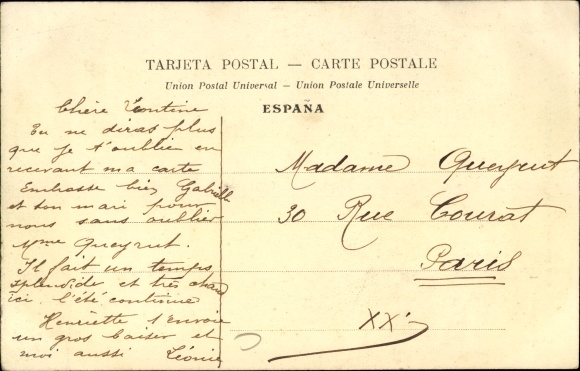 TARJETA POSTAL — CARTE POSTALE
Union Postal Universal — Union Postale Universelle
ESPAÑA
Chère Tontine
Tu ne diras plus
que je t'oublie en
recevant ma carte
Embrasse bien Gabrielle
et ton mari pour
nous sans oublier
Mme Queyrut.
Il fait un temps
splendide et très chaud
ici. l'été continue
Henriette t'envoie
un gros baiser et
moi aussi Léonie
Madame Queyrut
30 Rue Courat
Paris
XXe